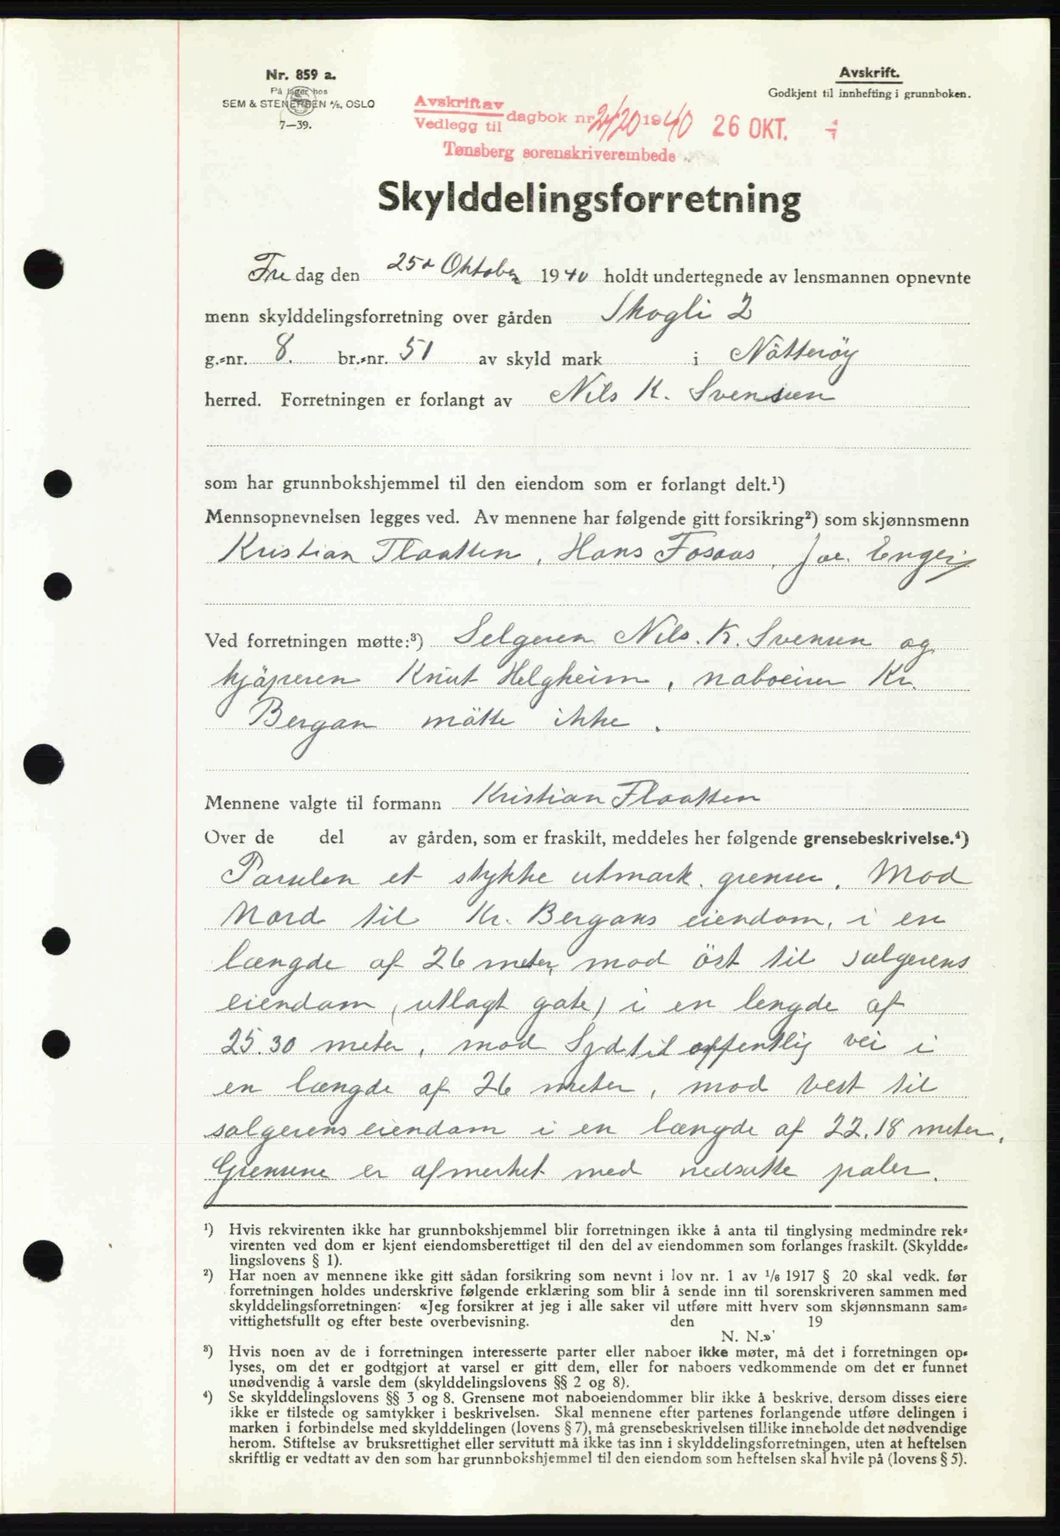 Nr. 859 a.
På lager hos
SEM & STENERSEN A/S, OSLO
7—39.
Avskrift.
Godkjent til innhefting i grunnboken.
Avskrift av
Vedlegg til dagbok nr. 2420 1940 26 OKT.
Tønsberg sorenskriverembede
Skylddelingsforretning
Fre dag den 25d Oktober 1940 holdt undertegnede av lensmannen opnevnte
menn skylddelingsforretning over gården Skogli 2
g.-nr. 8. br.-nr. 51 av skyld mark i Nøtterøy
herred. Forretningen er forlangt av Nils K. Svensen
som har grunnbokshjemmel til den eiendom som er forlangt delt.¹)
Mennsopnevnelsen legges ved. Av mennene har følgende gitt forsikring²) som skjønnsmenn
Kristian Flaatten, Hans Fosaas, Joe. Engø
Ved forretningen møtte:³) Selgeren Nils. K. Svensen og
kjöperen Knut Helgheim, naboeier Kr.
Bergan mötte ikke.
Mennene valgte til formann Kristian Flaatten
Over de del av gården, som er fraskilt, meddeles her følgende grensebeskrivelse.⁴)
Parselen et stykke utmark. grenser. Mod
Nord til Kr. Bergans eiendom, i en
længde af 26 meter, mod öst til sælgerens
eiendom (utlagt gate) i en lengde af
25.30 meter, mod Syd til offentlig vei i
en længde af 26 meter, mod vest til
sælgerens eiendom i en længde af 22.18 meter.
Grensene er afmerket med nedsatte pæler.
¹) Hvis rekvirenten ikke har grunnbokshjemmel blir forretningen ikke å anta til tinglysing medmindre rek-
virenten ved dom er kjent eiendomsberettiget til den del av eiendommen som forlanges fraskilt. (Skyldde-
lingslovens § 1).
²) Har noen av mennene ikke gitt sådan forsikring som nevnt i lov nr. 1 av 1/6 1917 § 20 skal vedk. før
forretningen holdes underskrive følgende erklæring som blir å sende inn til sorenskriveren sammen med
skylddelingsforretningen: «Jeg forsikrer at jeg i alle saker vil utføre mitt hverv som skjønnsmann sam-
vittighetsfullt og efter beste overbevisning. den 19
N. N.»'
³) Hvis noen av de i forretningen interesserte parter eller naboer ikke møter, må det i forretningen op-
lyses, om det er godtgjort at varsel er gitt dem, eller for naboers vedkommende om det er funnet
unødvendig å varsle dem (skylddelingslovens §§ 2 og 8).
⁴) Se skylddelingslovens §§ 3 og 8. Grensene mot naboeiendommer blir ikke å beskrive, dersom disses eiere
ikke er tilstede og samtykker i beskrivelsen. Skal mennene efter partenes forlangende utføre delingen i
marken i forbindelse med skylddelingen (lovens § 7), må grensebeskrivelsen tillike inneholde det nødvendige
herom. Stiftelse av bruksrettighet eller servitutt må ikke tas inn i skylddelingsforretningen, uten at heftelsen
skriftlig er vedtatt av den som har grunnbokshjemmel til den eiendom som heftelsen skal hvile på (lovens § 5).